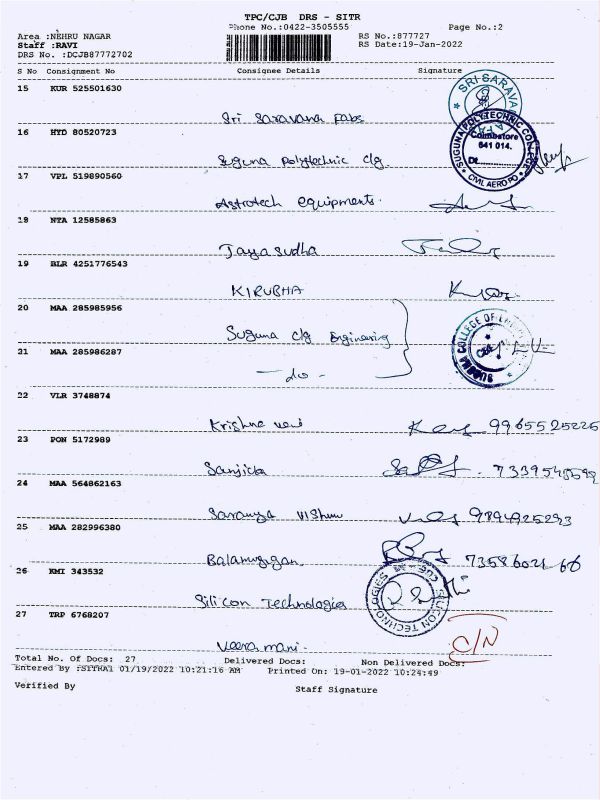 TPC/CJB DRS - SITR
Phone No.:0422-3505555 Page No.:2
Area :NEHRU NAGAR RS No.:877727
Staff :RAVI RS Date:19-Jan-2022
DRS No. :DCJB87772702
S No Consignment No Consignee Details Signature
15 KUR 525501630
Sri Saravana Fabs
SRI SARAVA
16 HYD 80520723
Suguna Polytechnic clg
SUGUNA POLYTECHNIC COLLEGE
Coimbatore
641 014.
Dt.
CIVIL AERO PO
17 VPL 519890560
Astrotech equipments.
18 NTA 12585863
Jayasudha
19 BLR 4251776543
KIRUBHA
20 MAA 285985956
Suguna clg Engineering
SUGUNA COLLEGE OF
CBE
21 MAA 285986287
- do -
22 VLR 3748874
Krishna veni 9965525226
23 PON 5172989
Sanjitha
24 MAA 564862163
Saranya Vishnu 9894925293
25 MAA 282996380
Balamurugan 7358602166
26 KMI 343532
Silicon Technologies
SILICON TECHNOLOGIES
27 TRP 6768207
Veeramani. C/N
Total No. Of Docs: 27 Delivered Docs: Non Delivered Docs:
Entered By :SITHAI 01/19/2022 10:21:16 AM Printed On: 19-01-2022 10:24:49
Verified By Staff Signature